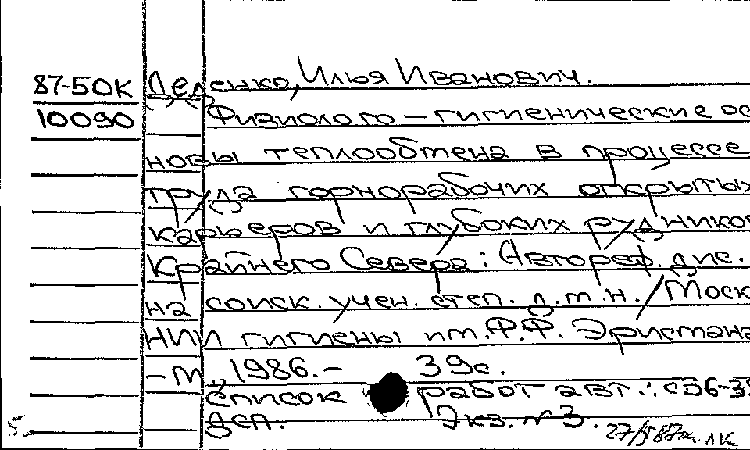 87-50К Деденко, Илья Иванович.
10090 Физиолого-гигиенические ос
новы теплообмена в процессе
труда горнорабочих открытых
карьеров и глубоких рудников
Крайнего Севера: Автореф. дис.
на соиск. учен. степ. д.м.н. / Моск
НИИ гигиены им. Ф.Ф. Эрисмана
-М, 1986.- 39с.
Список работ авт.: с36-3
Дсп. Экз. №3.
27/ 87г. ЛК